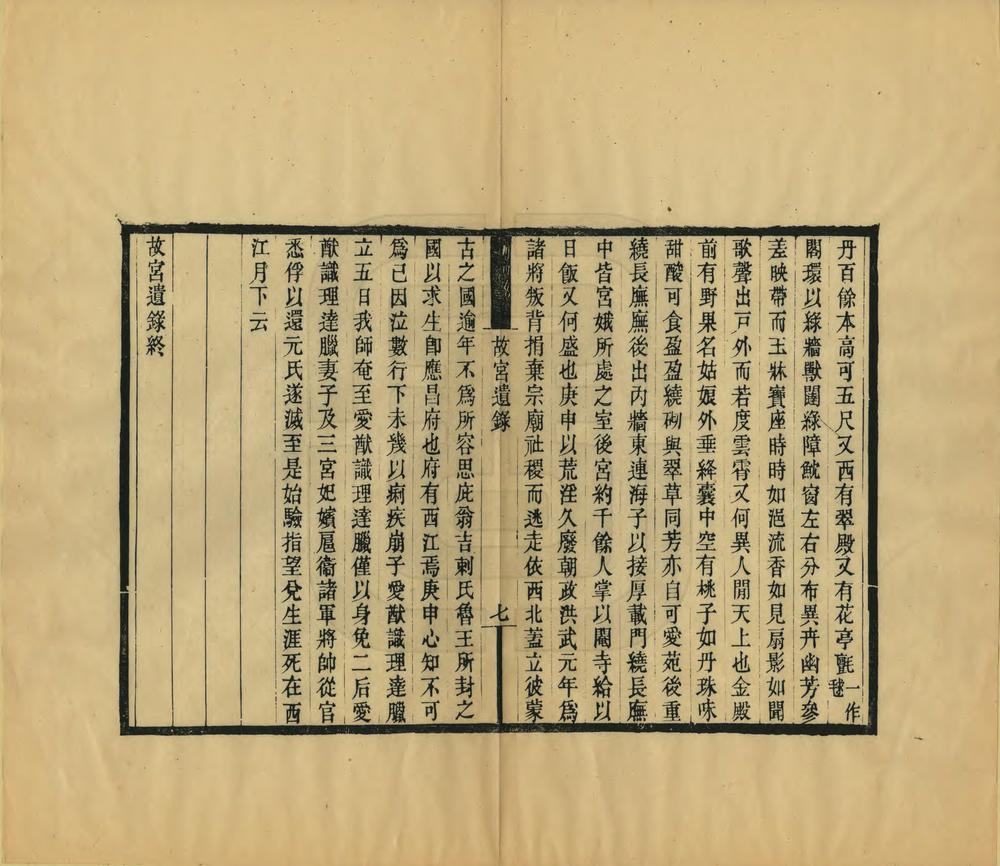 丹百餘本高可五尺又西有翠殿又有花亭氈一作毬
閣環以綠牆獸闥綠障魫窗左右分布異卉幽芳參
差映帶而玉牀寶座時時如浥流香如見扇影如聞
歌聲出戸外而若度雲霄又何異人閒天上也金殿
前有野果名姑娘外垂絳囊中空有桃子如丹珠味
甜酸可食盈盈繞砌與翠草同芳亦自可愛苑後重
繞長廡廡後出內牆東連海子以接厚載門繞長廡
中皆宮娥所處之室後宮約千餘人掌以閹寺給以
日飯又何盛也庚申以荒淫久廢朝政洪武元年爲
諸將叛背捐棄宗廟社稷而逃走依西北蓋立彼蒙
故宮遺錄
七
古之國逾年不爲所容思庇翁吉剌氏魯王所封之
國以求生卽應昌府也府有西江焉庚申心知不可
爲已因泣數行下未幾以痢疾崩子愛猷識理達臘
立五日我師奄至愛猷識理達臘僅以身免二后愛
猷識理達臘妻子及三宮妃嬪扈衞諸軍將帥從官
悉俘以還元氏遂滅至是始驗指望兌生涯死在西
江月下云
故宮遺錄終